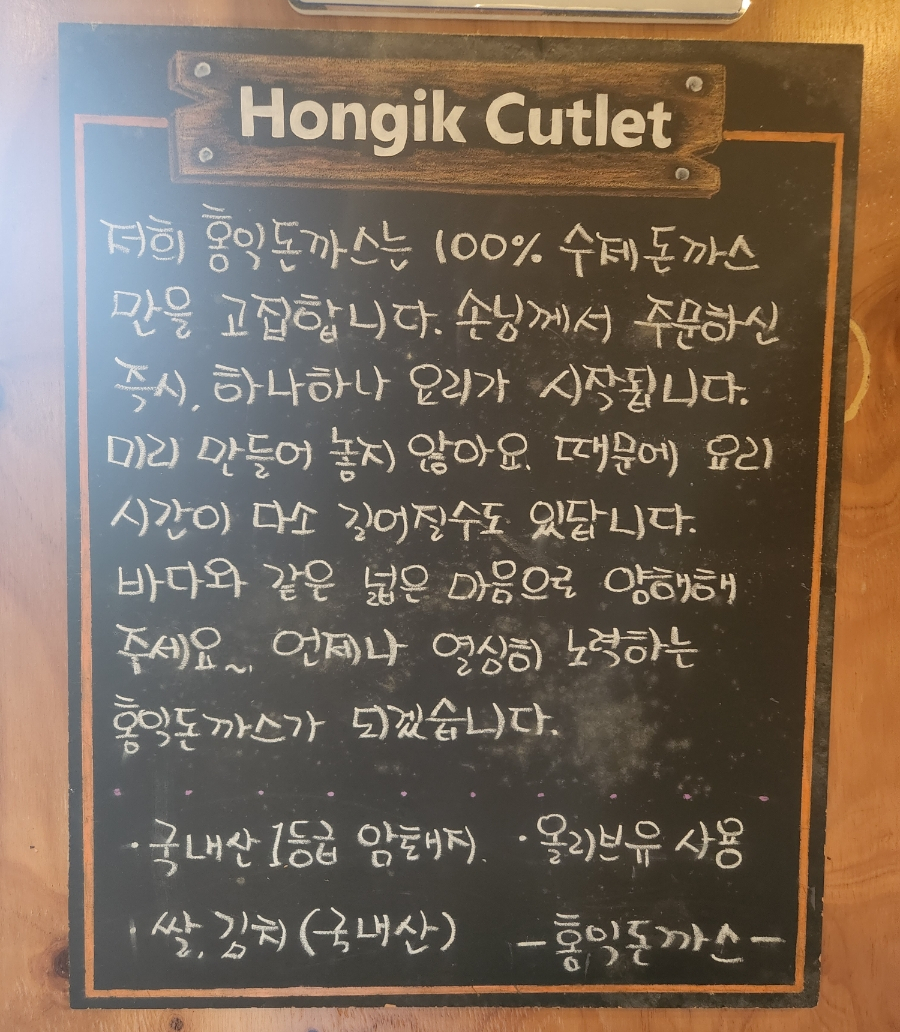 Hongik Cutlet
저희 홍익돈까스는 100% 수제돈까스
만을 고집합니다. 손님께서 주문하신
즉시, 하나하나 요리가 시작됩니다.
미리 만들어 놓지 않아요. 때문에 요리
시간이 다소 길어질수도 있답니다.
바다와 같은 넓은 마음으로 양해해
주세요~. 언제나 열심히 노력하는
홍익돈까스가 되겠습니다.
·국내산 1등급 암퇘지. ·올리브유 사용
·쌀, 김치(국내산) -홍익돈까스-